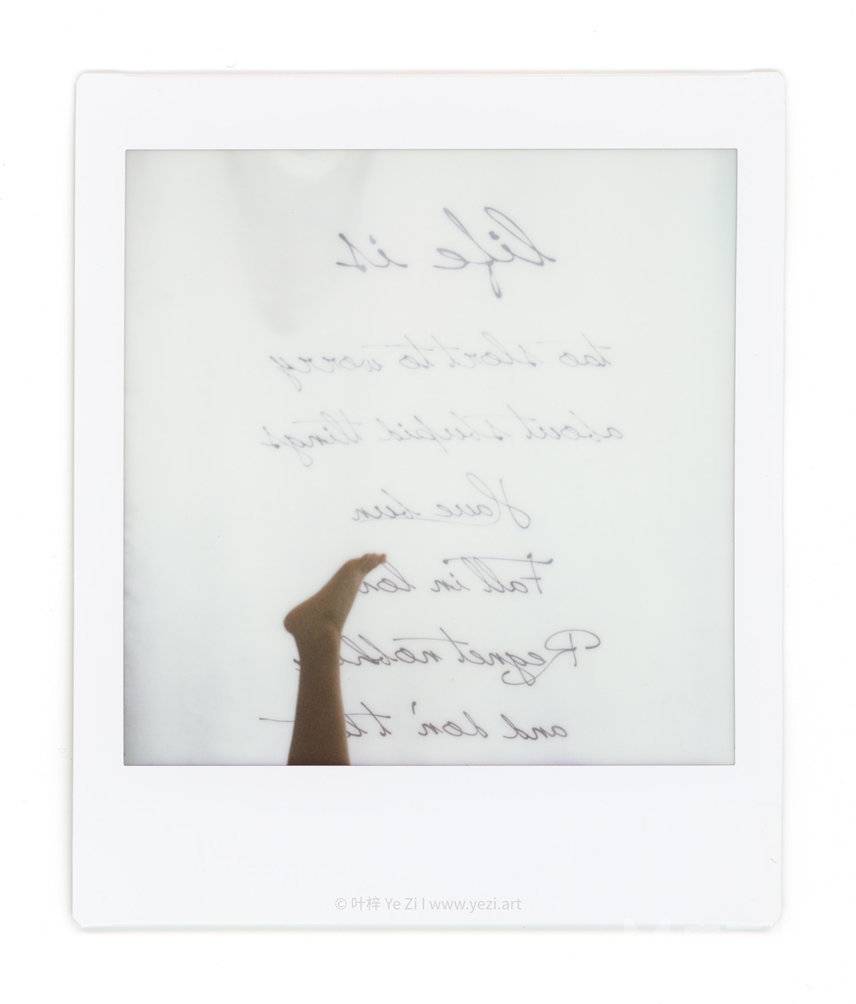 life is
too short to worry
about stupid things
Have fun
Fall in lov
Regret nothi
and don't l
© 叶梓 Ye Zi | www.yezi.art